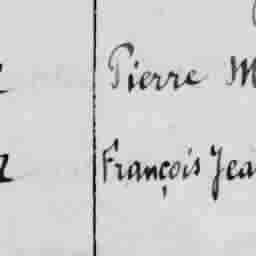 Pierre M
François Jea